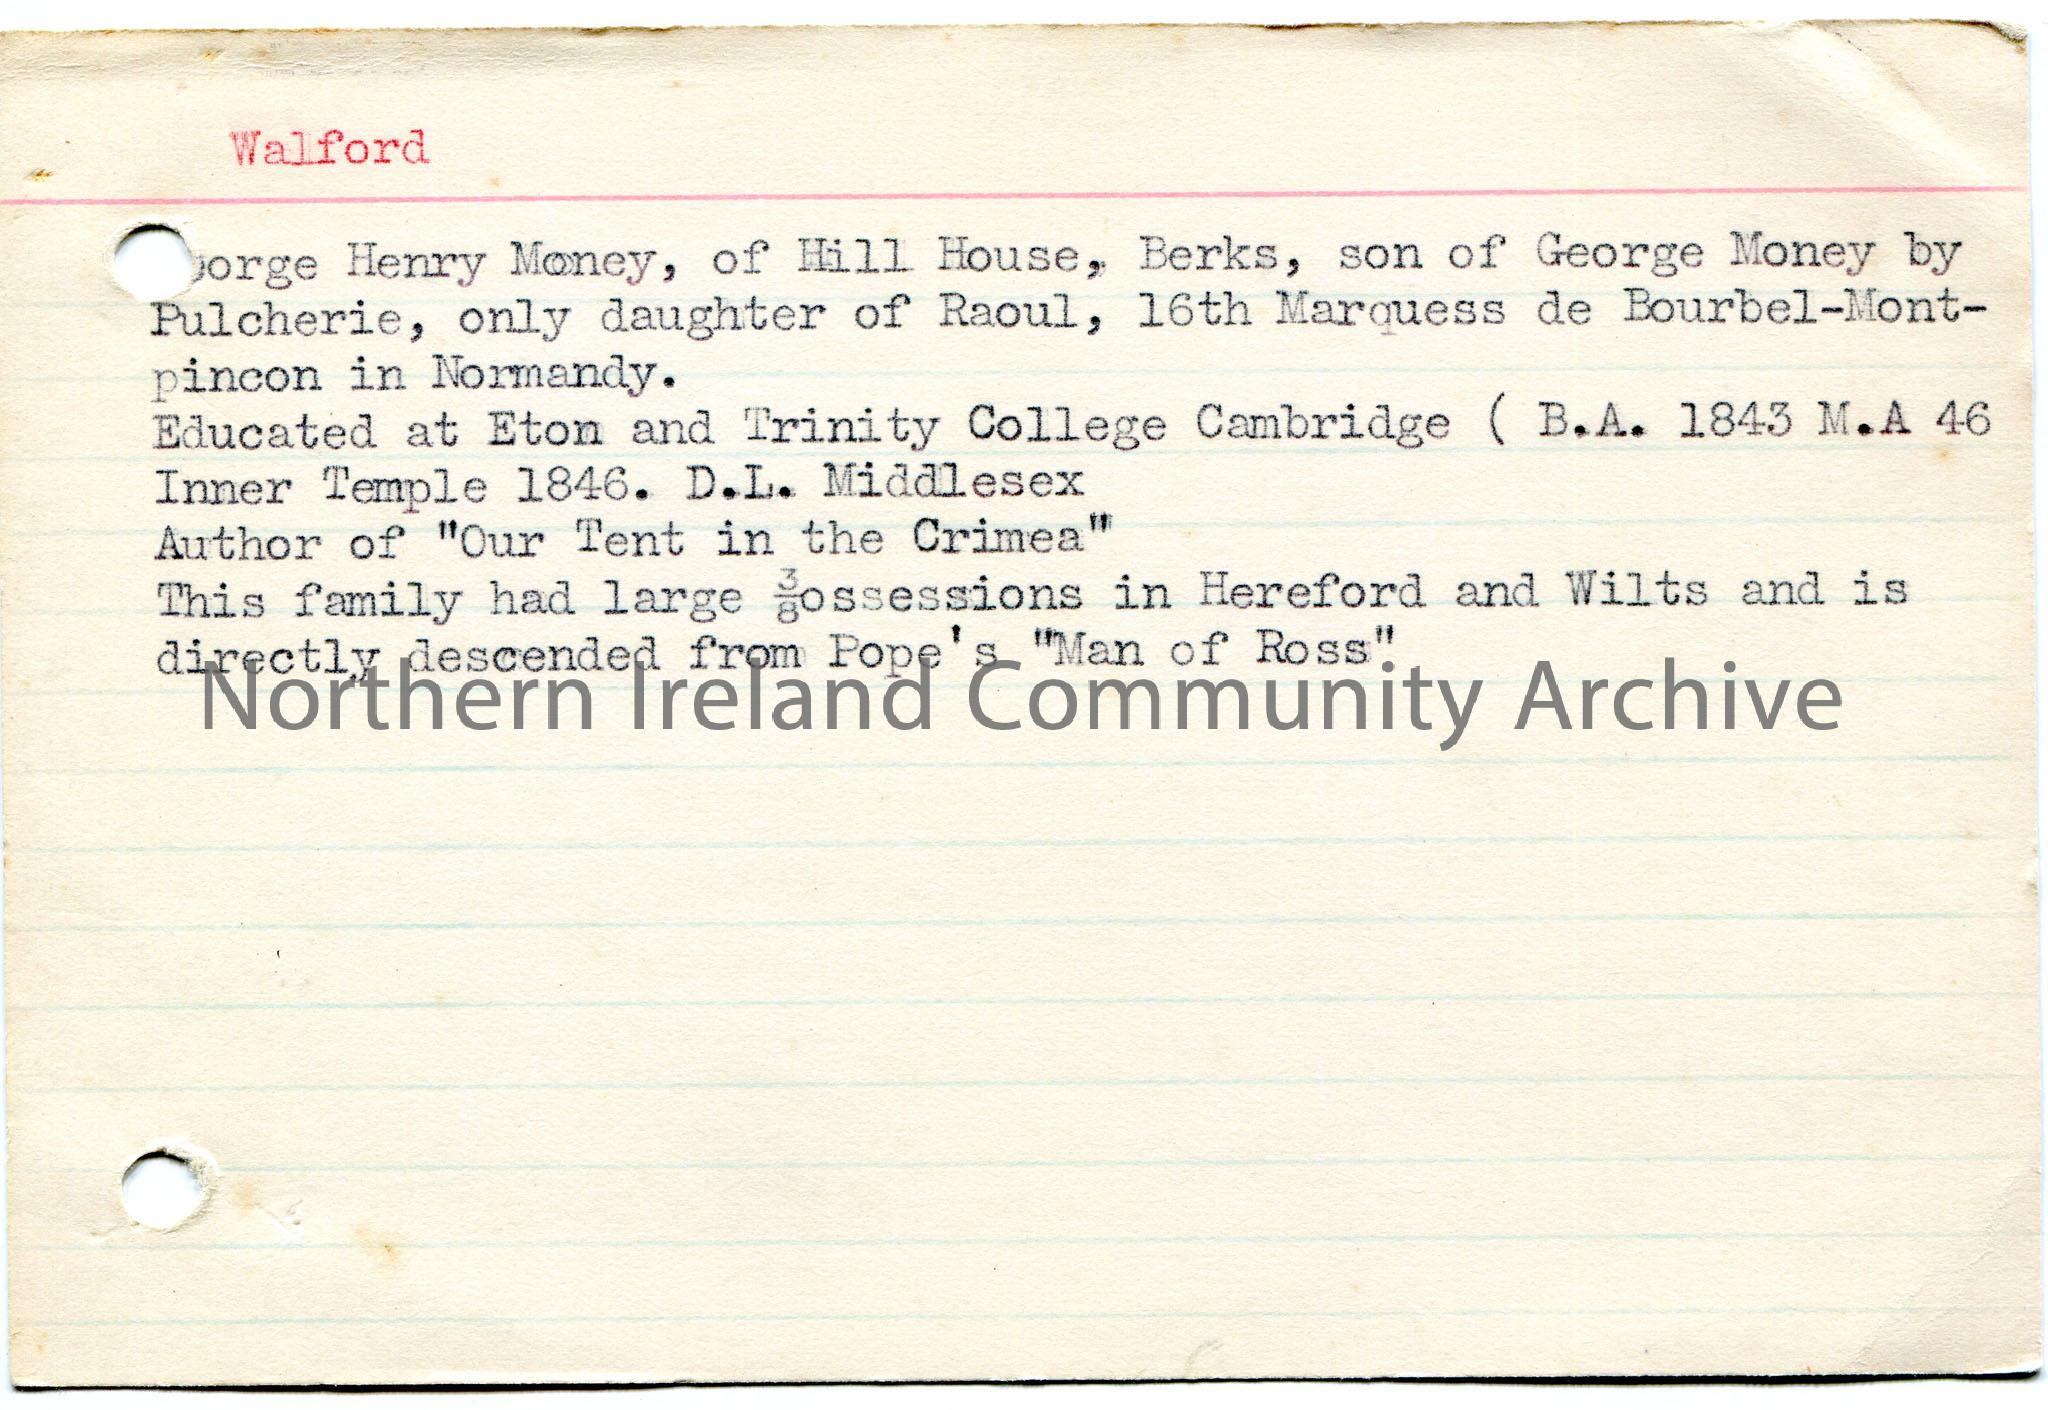 Walford
George Henry Money, of Hill House, Berks, son of George Money by
Pulcherie, only daughter of Raoul, 16th Marquess de Bourbel-Mont-
pincon in Normandy.
Educated at Eton and Trinity College Cambridge ( B.A. 1843 M.A 46
Inner Temple 1846. D.L. Middlesex
Author of "Our Tent in the Crimea"
This family had large ⅜ossessions in Hereford and Wilts and is
directly descended from Pope's "Man of Ross"
Northern Ireland Community Archive